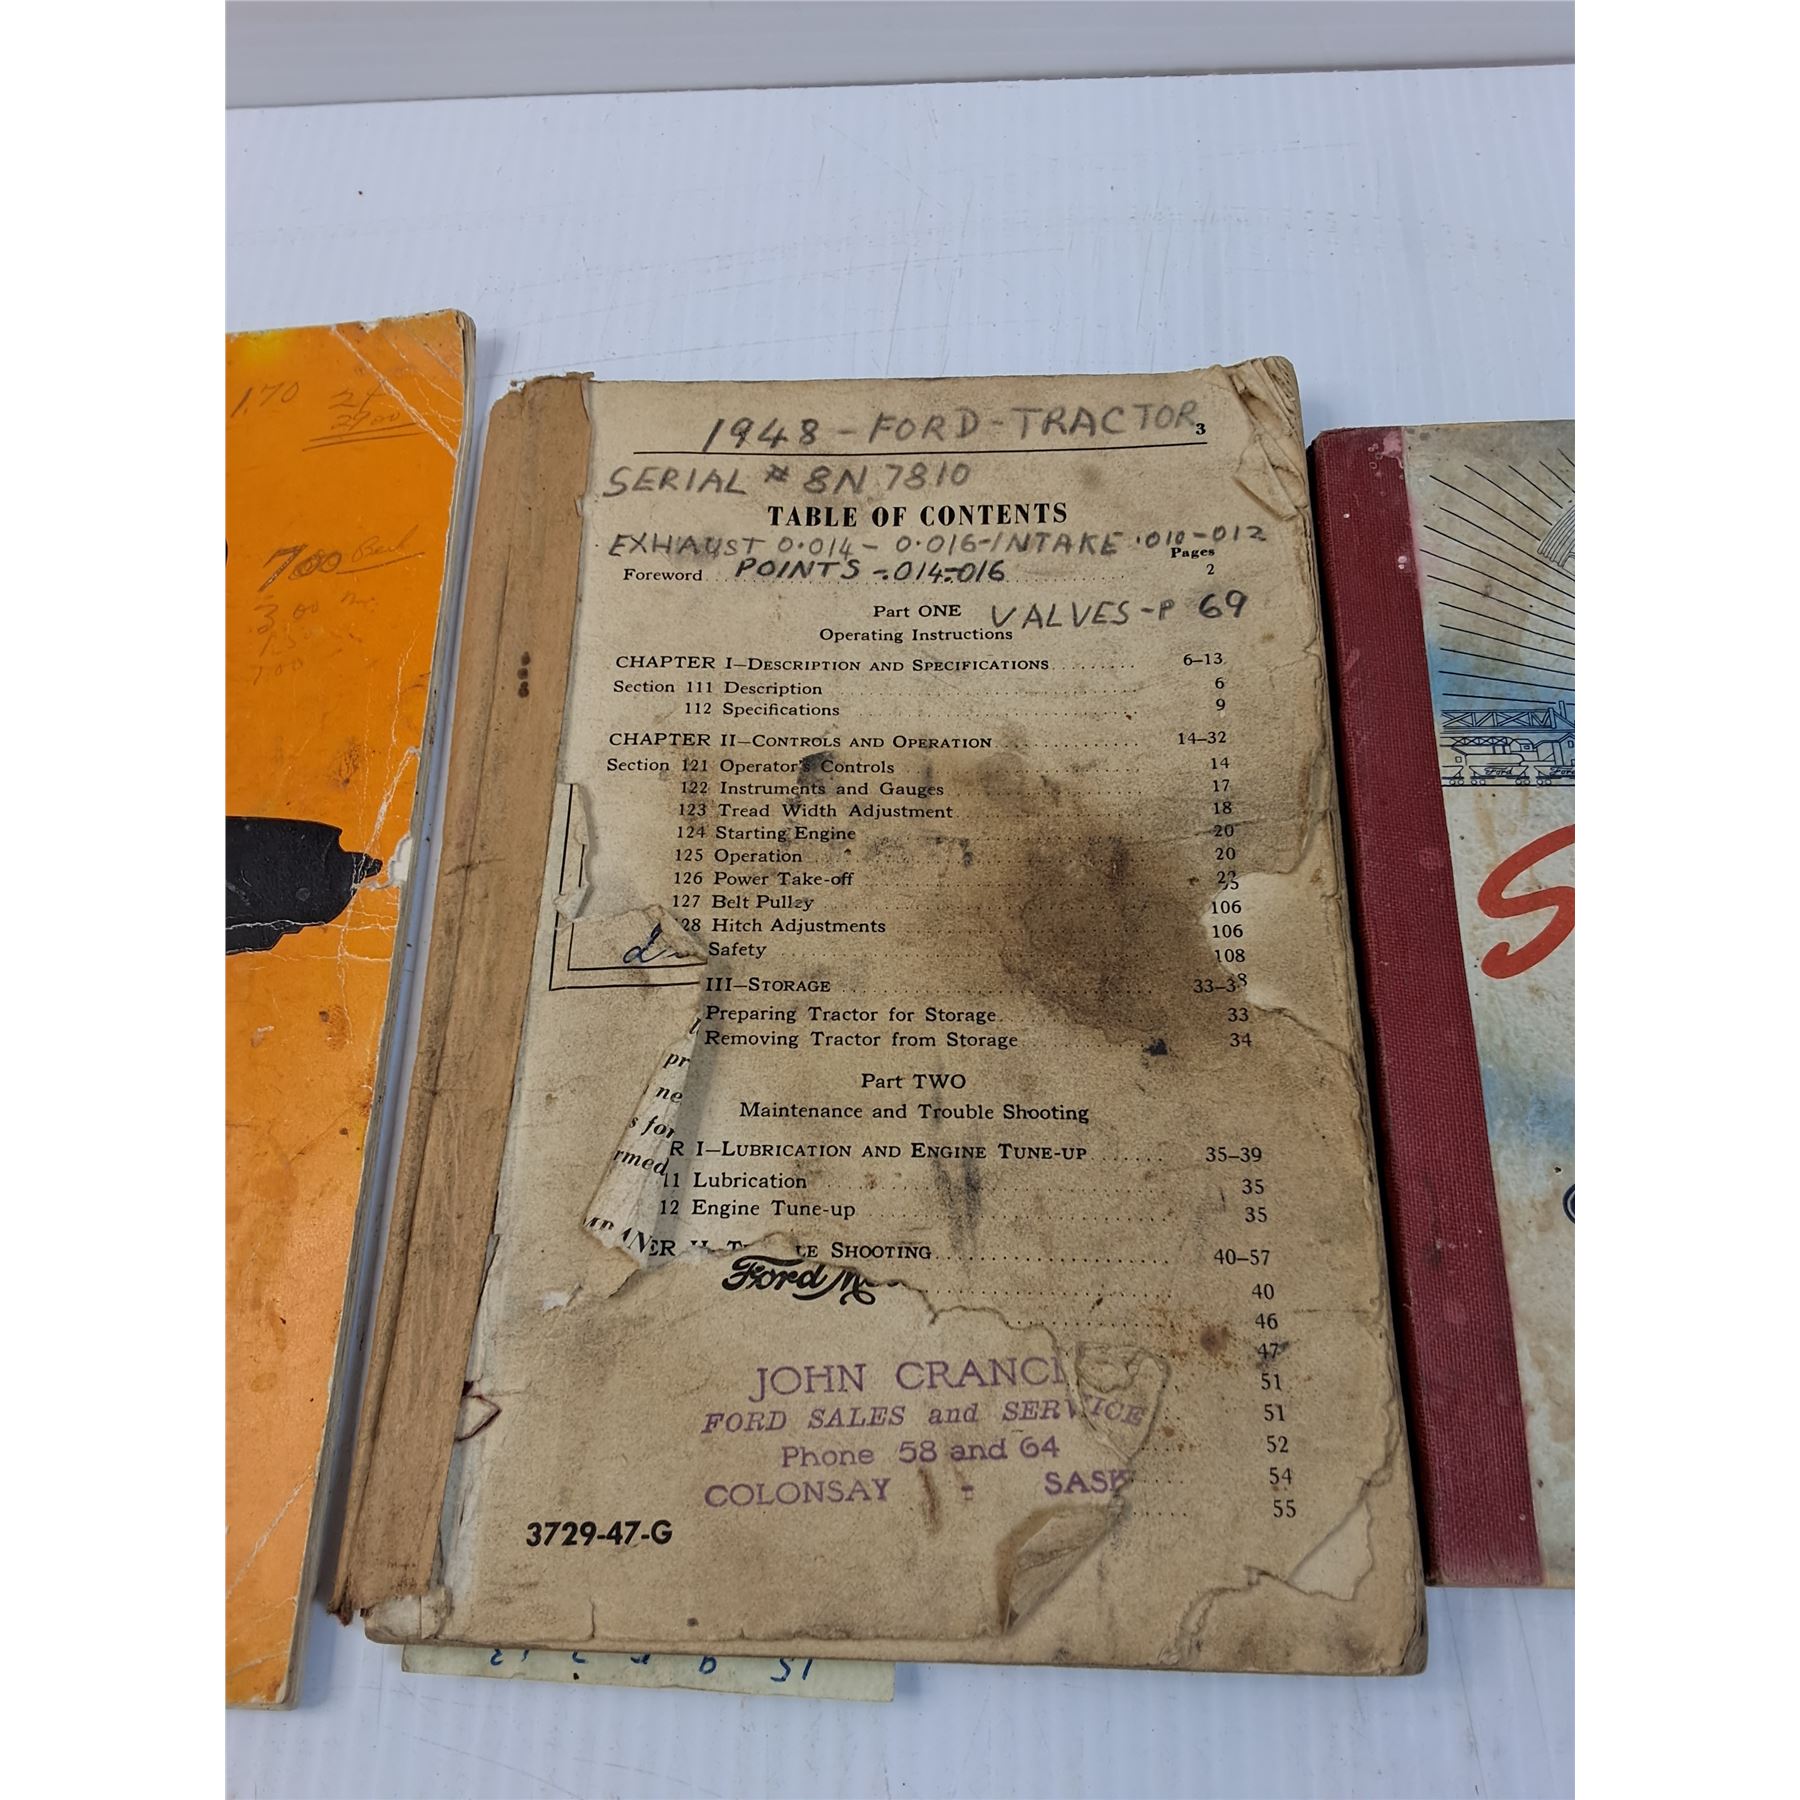 1.70
24
2900
700
1948 - FORD - TRACTOR
3
SERIAL # 8N 7810
TABLE OF CONTENTS
EXHAUST 0.014 - 0.016 - INTAKE .010-012
Pages
Foreword 2
POINTS - .014-.016
Part ONE
VALVES - P 69
Operating Instructions
CHAPTER I—DESCRIPTION AND SPECIFICATIONS 6-13
Section 111 Description 6
112 Specifications 9
CHAPTER II—CONTROLS AND OPERATION 14-32
Section 121 Operator's Controls 14
122 Instruments and Gauges 17
123 Tread Width Adjustment 18
124 Starting Engine 20
125 Operation 20
126 Power Take-off
127 Belt Pulley 106
28 Hitch Adjustments 106
Safety 108
III—STORAGE 33-38
Preparing Tractor for Storage 33
Removing Tractor from Storage 34
pr
ne
s for
rmed
Part TWO
Maintenance and Trouble Shooting
R I—LUBRICATION AND ENGINE TUNE-UP 35-39
11 Lubrication 35
12 Engine Tune-up 35
SHOOTING 40-57
Ford M
40
46
47
51
51
52
54
55
JOHN CRANC
FORD SALES and SERVICE
Phone 58 and 64
COLONSAY - SASK
3729-47-G
Ford
Ford
S